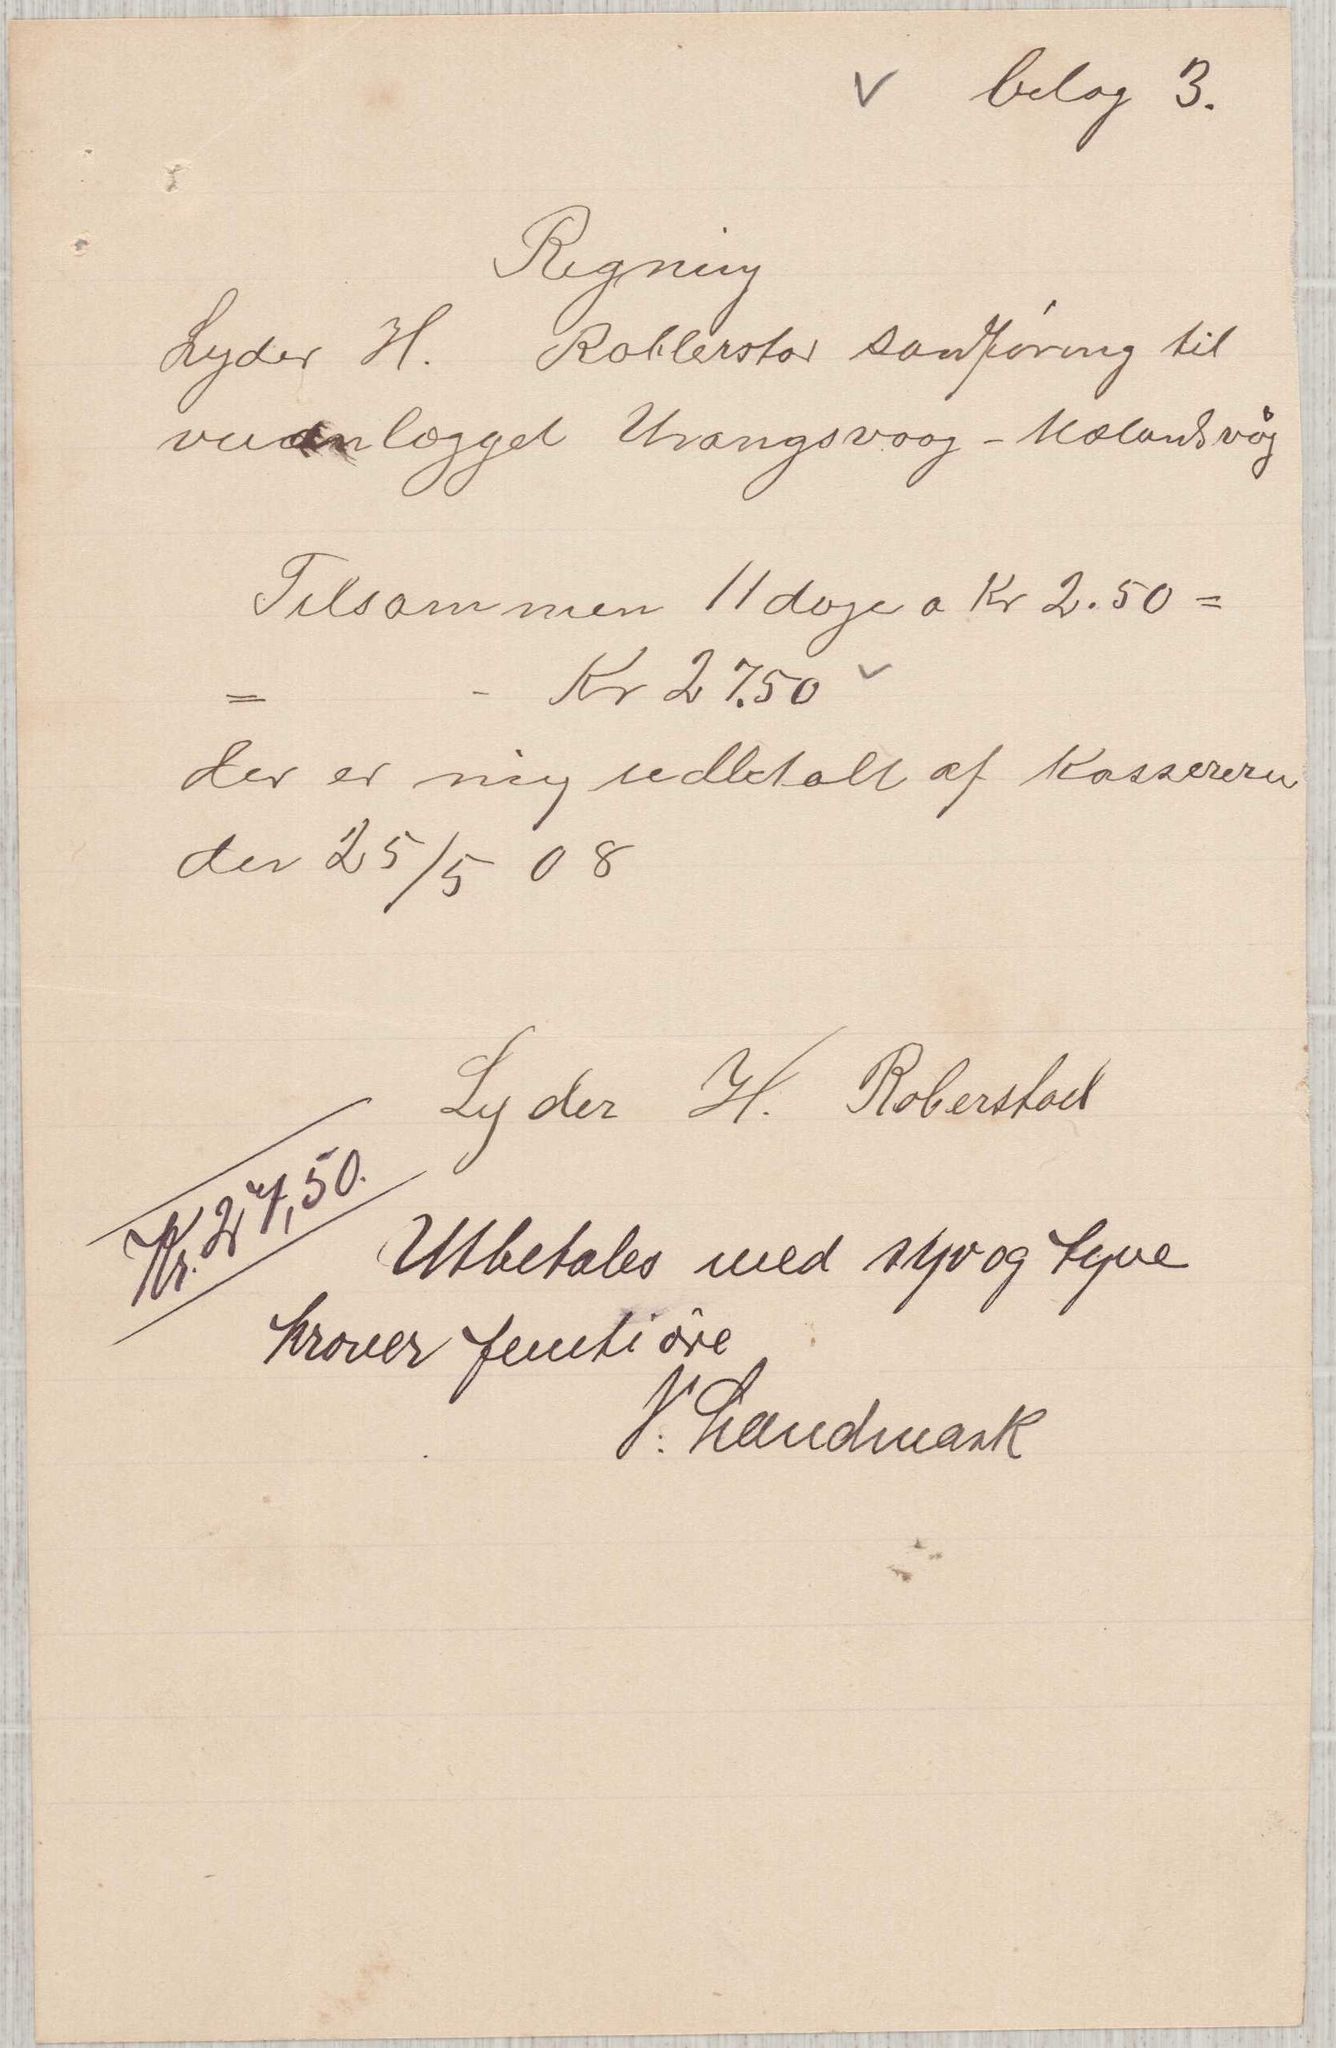 v belag 3.
Regning
Lyder H. Robberstad sandføring til
veianlægget Urangsvaag - Mælandsvåg
Tilsammen 11 dage a Kr 2.50 =
= - Kr 27.50 v
der er mig udbetalt af Kassereren
den 25/5 08
Lyder H. Roberstad
Kr. 27,50.
Utbetales med syv og tyve
kroner femti öre
V. Landmark